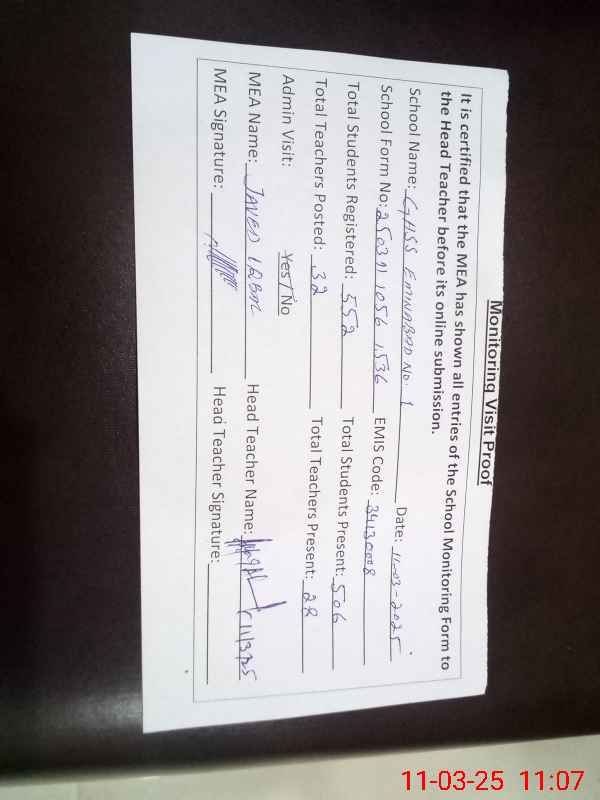 Monitoring Visit Proof
It is certified that the MEA has shown all entries of the School Monitoring Form to
the Head Teacher before its online submission.
School Name: GHSS EMINABAD No. 1 Date: 11-03-2025
School Form No: 250311056 1536 EMIS Code: 34130008
Total Students Registered: 552 Total Students Present: 506
Total Teachers Posted: 32 Total Teachers Present: 28
Admin Visit: Yes / No
MEA Name: JAVED IQBAL Head Teacher Name: 11/3/25
MEA Signature: Head Teacher Signature:
11-03-25 11:07